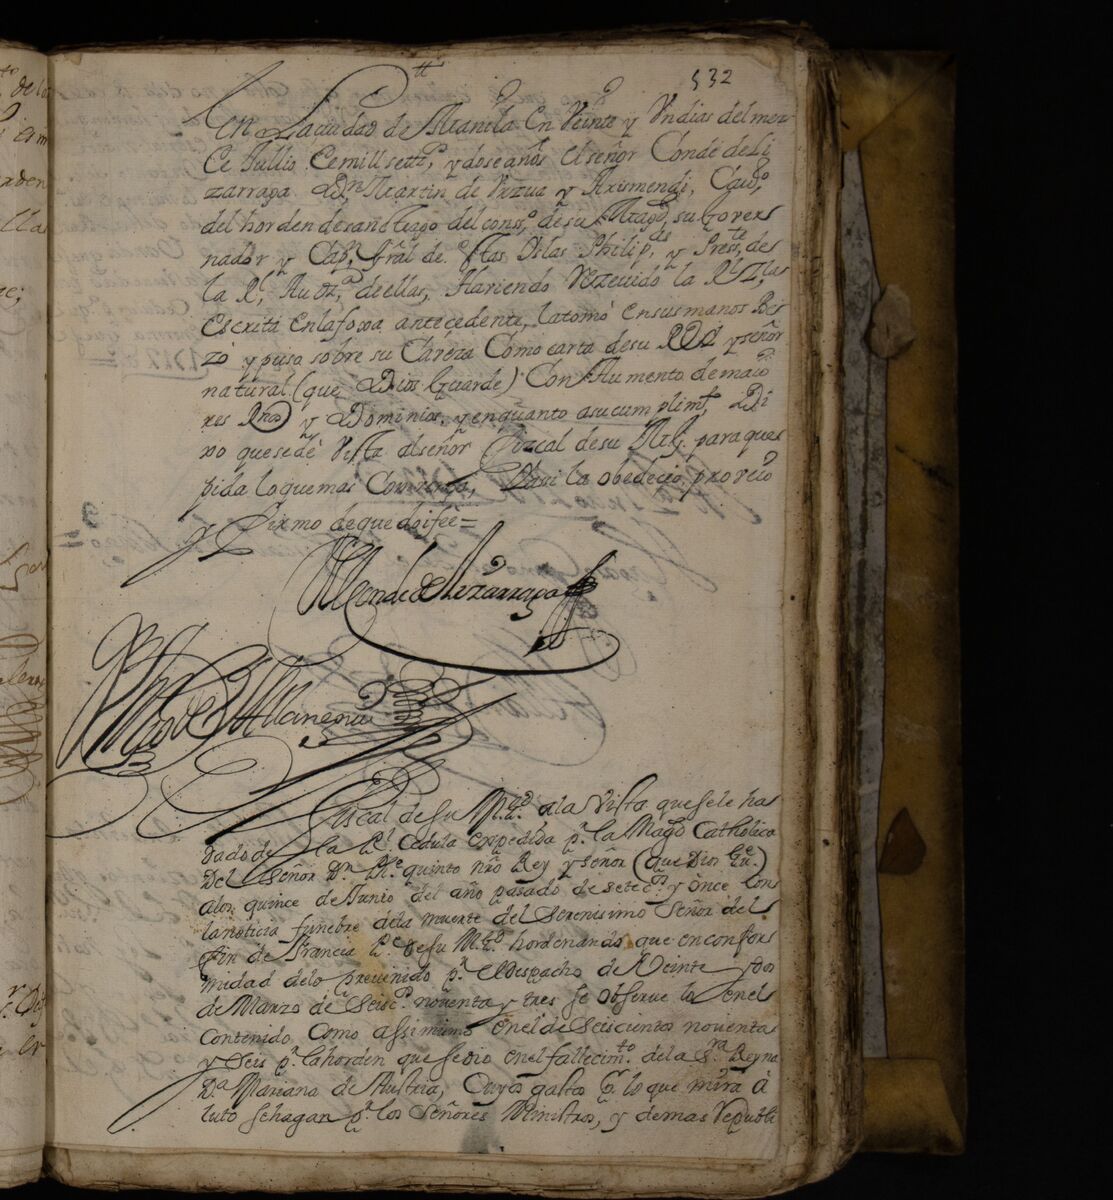 532
En La ciudad de Manila En Veinte y Vn dias del mes
de Jullio de mill settes, y dose años el señor Conde de Li
zarraga Dn Martin de Vrzua y Arismendi, Cauo,
del horden de sanctiago del conso. de su Magd, su Gover
nador, y Capn, Gral de estas Yslas Philipas, y Preste, de
la Rl, Audza de ellas, Haviendo Rezeuido la Rl Zla
escrita en la foxa antecedente, la tomò en sus manos Be
zò y puso sobre su Caveza Como carta de su Rey y señor
natural (que Dios Guarde) Con Aumento de maio
res Rnos y Dominios, y en quanto a su cumplimto, Di
xo que se dè Vista al señor Fizcal de su Magd. para que
pida lo que mas Convenga, Y asi lo obedecio, proveio
y Firmo de que doi fee=
El Conde de Lizarraga
Fiscal de su Mgd. a la Vista que se le ha
dado de la Rl. Cedula expedida pr. la Magd Catholica
Del Señor Dn Phe quinto nro Rey y señor (que Dios Gue.)
a los quince de Junio del año pasado de setecos y once Con
la noticia funebre de la muerte del Serenisimo Señor del
fin de Francia Pe de su Mgd. hordenando que en confor
midad de lo prevenido pr. el despacho de Veinte y dos
de Marzo de Seiscos noventa y tres se observe lo en el
Contenido Como assimimo en el de Seiscientos noventa
y Seis pr. la horden que se dio en el fallecimto. de la Sra Reyna
Da. Mariana de Austria, Cuyos gastos pr. lo que mira à
luto se hagan pr. los Señores Ministros, y demas Republi